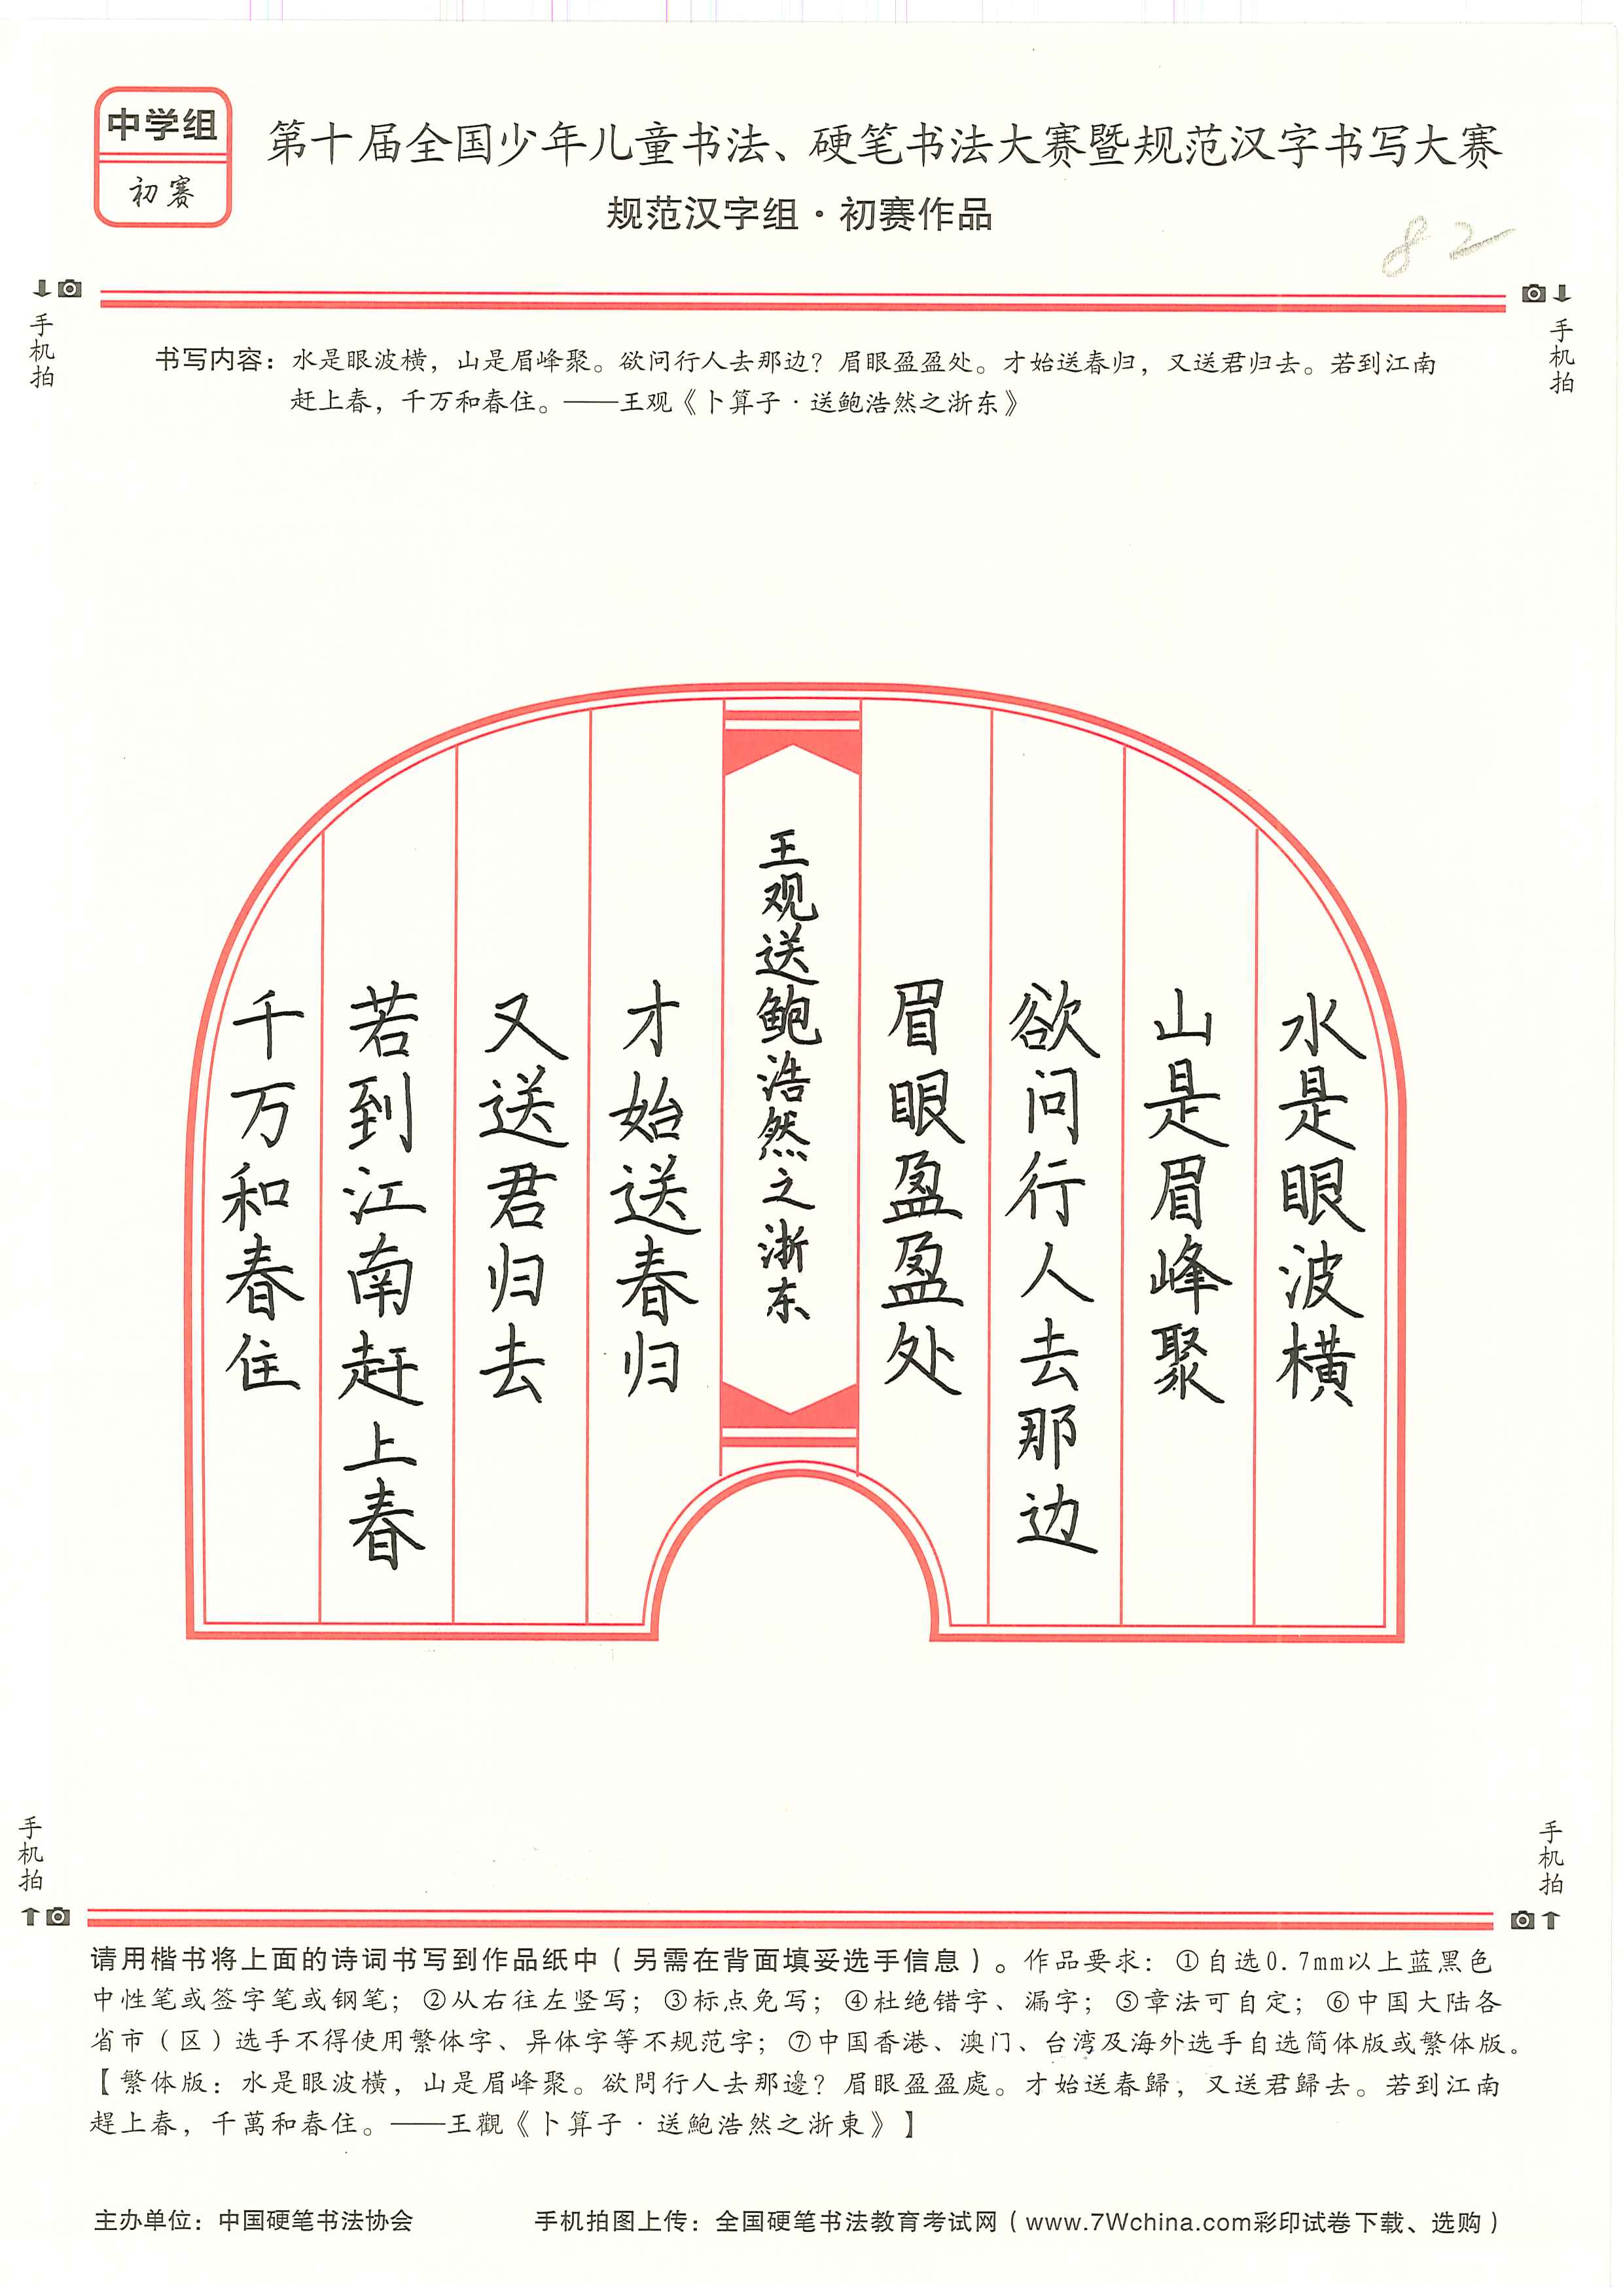 中学组
初赛
第十届全国少年儿童书法、硬笔书法大赛暨规范汉字书写大赛
规范汉字组·初赛作品
82
手机拍
手机拍
书写内容：水是眼波横，山是眉峰聚。欲问行人去那边？眉眼盈盈处。才始送春归，又送君归去。若到江南
赶上春，千万和春住。——王观《卜算子·送鲍浩然之浙东》
水是眼波横
山是眉峰聚
欲问行人去那边
眉眼盈盈处
王观送鲍浩然之浙东
才始送春归
又送君归去
若到江南赶上春
千万和春住
手机拍
手机拍
请用楷书将上面的诗词书写到作品纸中（另需在背面填妥选手信息）。作品要求：①自选0.7mm以上蓝黑色
中性笔或签字笔或钢笔；②从右往左竖写；③标点免写；④杜绝错字、漏字；⑤章法可自定；⑥中国大陆各
省市（区）选手不得使用繁体字、异体字等不规范字；⑦中国香港、澳门、台湾及海外选手自选简体版或繁体版。
【繁体版：水是眼波横，山是眉峰聚。欲問行人去那邊？眉眼盈盈處。才始送春歸，又送君歸去。若到江南
趕上春，千萬和春住。——王觀《卜算子·送鮑浩然之浙東》】
主办单位：中国硬笔书法协会
手机拍图上传：全国硬笔书法教育考试网（www.7Wchina.com彩印试卷下载、选购）